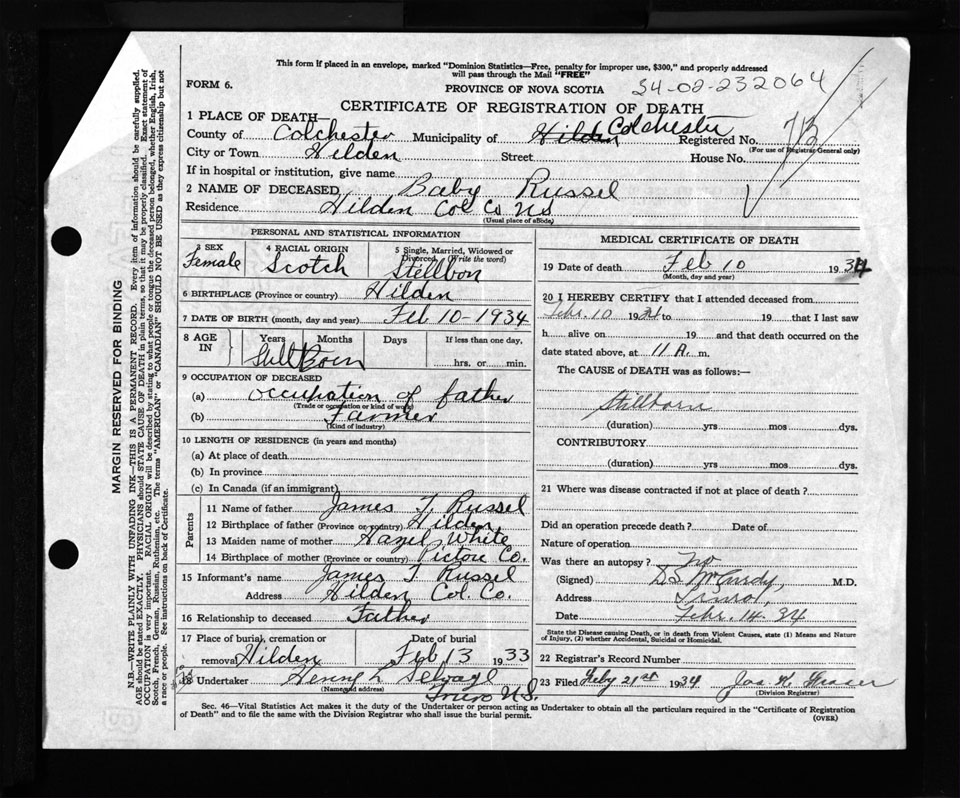 This form if placed in an envelope, marked "Dominion Statistics—Free, penalty for improper use, $300," and properly addressed
will pass through the Mail "FREE"
FORM 6.
PROVINCE OF NOVA SCOTIA
34-02-232064
CERTIFICATE OF REGISTRATION OF DEATH
1 PLACE OF DEATH—
County of Colchester Municipality of Hilden Colchester Registered No. 73
(For use of Registrar General only)
City or Town Hilden Street House No.
If in hospital or institution, give name
2 NAME OF DECEASED Baby Russel
Residence Hilden Col Co NS
(Usual place of abode)
PERSONAL AND STATISTICAL INFORMATION
3 SEX 4 RACIAL ORIGIN 5 Single, Married, Widowed or
Divorced (Write the word)
Female Scotch Stellbon
6 BIRTHPLACE (Province or country) Hilden
7 DATE OF BIRTH (month, day and year) Feb 10-1934
8 AGE IN Years Months Days If less than one day,
Still Born hrs. or min.
9 OCCUPATION OF DECEASED
(a) occupation of father
(Trade or occupation or kind of work)
(b) Farmer
(Kind of industry)
10 LENGTH OF RESIDENCE (in years and months)
(a) At place of death
(b) In province
(c) In Canada (if an immigrant)
Parents
11 Name of father James T. Russel
12 Birthplace of father (Province or country) Hilden
13 Maiden name of mother Hazel White
14 Birthplace of mother (Province or country) Pictou Co.
15 Informant's name James T Russel
Address Hilden Col. Co.
16 Relationship to deceased Father
17 Place of burial, cremation or Date of burial
removal Hilden Feb 13 1933
18 Undertaker Henry L Selvage
(Name and address) Truro N.S.
MEDICAL CERTIFICATE OF DEATH
19 Date of death Feb 10 1934
(Month, day and year)
20 I HEREBY CERTIFY that I attended deceased from
Febr. 10 1934 to 19 that I last saw
h alive on 19 and that death occurred on the
date stated above, at 11 A. m.
The CAUSE of DEATH was as follows:—
Stillborn
(duration) yrs mos dys.
CONTRIBUTORY
(duration) yrs mos dys.
21 Where was disease contracted if not at place of death?
Did an operation precede death? Date of
Nature of operation
Was there an autopsy? No
(Signed) D S McCurdy, M.D.
Address Truro,
Date Febr. 14. 34
State the Disease causing Death, or in death from Violent Causes, state (1) Means and Nature
of Injury, (2) whether Accidental, Suicidal or Homicidal.
22 Registrar's Record Number
23 Filed Feby 21st 1934 Jas K. Fraser
(Division Registrar)
Sec. 46—Vital Statistics Act makes it the duty of the Undertaker or person acting as Undertaker to obtain all the particulars required in the "Certificate of Registration
of Death" and to file the same with the Division Registrar who shall issue the burial permit.
(OVER)
MARGIN RESERVED FOR BINDING
N.B.—WRITE PLAINLY WITH UNFADING INK—THIS IS A PERMANENT RECORD. Every item of information should be carefully supplied.
AGE should be stated EXACTLY. PHYSICIANS should STATE CAUSE OF DEATH in plain terms, so that it may be properly classified. Exact statement of
OCCUPATION is very important. RACIAL ORIGIN will be described by stating to what people or tongue the deceased person belonged, whether English, Irish,
Scotch, French, German, Russian, Ruthenian, etc. The terms "AMERICAN" or "CANADIAN" SHOULD NOT BE USED as they express citizenship but not
a race or people. See instructions on back of Certificate.